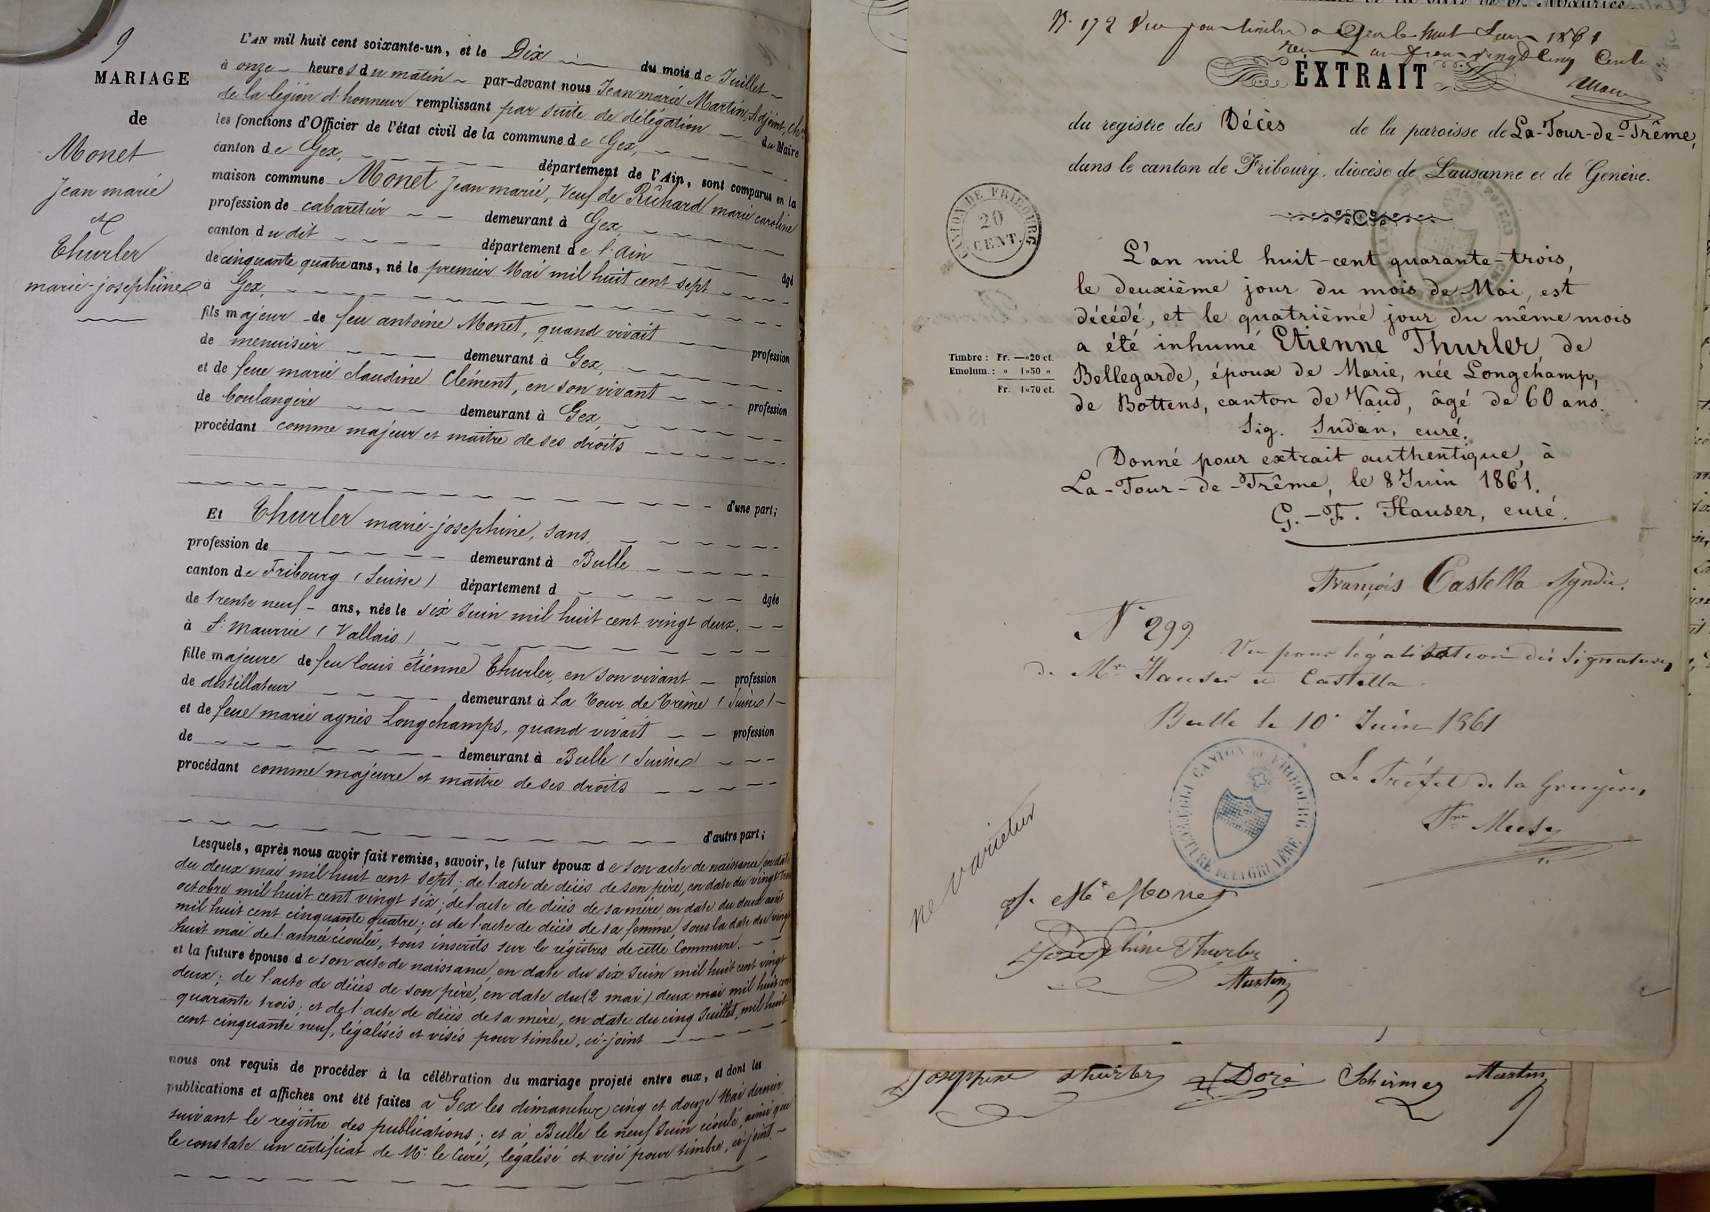 9
MARIAGE
de
Monet
Jean marié
et
Thurler
marie-josephine
L'AN mil huit cent soixante-un, et le Dix du mois de Juillet
à onze heures du matin par-devant nous Jean marié Martin, Adjoint, Ch.er
de la légion d'honneur remplissant par suite de délégation du Maire
les fonctions d'Officier de l'état civil de la commune de Gex,
canton de Gex, département de l'Ain, sont comparus en la
maison commune Monet Jean marié, Veuf de Richard marie caroline
profession de cabaretier demeurant à Gex,
canton du dit département de l'Ain âgé
de cinquante quatre ans, né le premier Mai mil huit cent sept
à Gex,
fils majeur de feu antoine Monet, quand vivait profession
de menuisier demeurant à Gex,
et de feue marie claudine Clément, en son vivant profession
de boulangère demeurant à Gex,
procédant comme majeur et maître de ses droits
d'une part;
Et Thurler marie-josephine, sans
profession de demeurant à Bulle
canton de Fribourg (Suisse) département d âgée
de trente neuf ans, née le six Juin mil huit cent vingt deux.
à St Maurice (Vallais)
fille majeure de feu louis étienne Thurler, en son vivant profession
de distillateur demeurant à La Tour de Trême (Suisse)
et de feue marie agnès Longchamps, quand vivait profession
de demeurant à Bulle (Suisse)
procédant comme majeure et maître de ses droits
d'autre part;
Lesquels, après nous avoir fait remise, savoir, le futur époux de son acte de naissance en date
du deux mai mil huit cent sept; de l'acte de décès de son père, en date du vingt trois
octobre mil huit cent vingt six; de l'acte de décès de sa mère en date du deux août
mil huit cent cinquante quatre; et de l'acte de décès de sa femme, sous la date du vingt
huit mai de l'année écoulée, tous inscrits sur le régistres de cette Commune.
et la future épouse de son acte de naissance, en date du six Juin mil huit cent vingt
deux; de l'acte de décès de son père, en date du (2 mai) deux mai mil huit cent
quarante trois; et de l'acte de décès de sa mère, en date du cinq Juillet, mil huit
cent cinquante neuf, légalisés et visés pour timbre, ci-joint
nous ont requis de procéder à la célébration du mariage projeté entre eux, et dont les
publications et affiches ont été faites à Gex les dimanches cinq et douze Mai dernier
suivant le régistre des publications; et à Bulle le neuf Juin écoulé, ainsi que
le constate un certificat de Mr le Curé, légalisé et visé pour timbre, ci-joint
N. 172 Vu pour timbre a Gex le huit Juin 1861
reçu un franc vingt Cinq Cent.
EXTRAIT
du registre des Décès de la paroisse de La-Tour-de-Trême,
dans le canton de Fribourg, diocèse de Lausanne et de Genève.
CANTON DE FRIBOURG
20
CENT.
L'an mil huit-cent quarante-trois,
le deuxième jour du mois de Mai, est
décédé, et le quatrième jour du même mois
a été inhumé Etienne Thurler, de
Bellegarde, époux de Marie, née Longchamp,
de Bottens, canton de Vaud, âgé de 60 ans.
Sig. Sudan, curé.
Timbre: Fr. —»20 ct.
Emolum.: » 1»50 »
Fr. 1»70 ct.
Donné pour extrait authentique, à
La-Tour-de-Trême, le 8 Juin 1861.
G.-F. Hauser, curé.
François Castella Syndic.
N° 299. Vu pour légalisation des signatures
de Mrs Hauser et Castella.
Bulle le 10 Juin 1861
Le Préfet de la Gruyère,
Fr. Musy
PREFECTURE DE LA GRUYÈRE CANTON DE FRIBOURG
ne varietur
J. Mie Monet
Joséphine Thurler
Martin
Josephine Thurler Doré Schirmer Martin